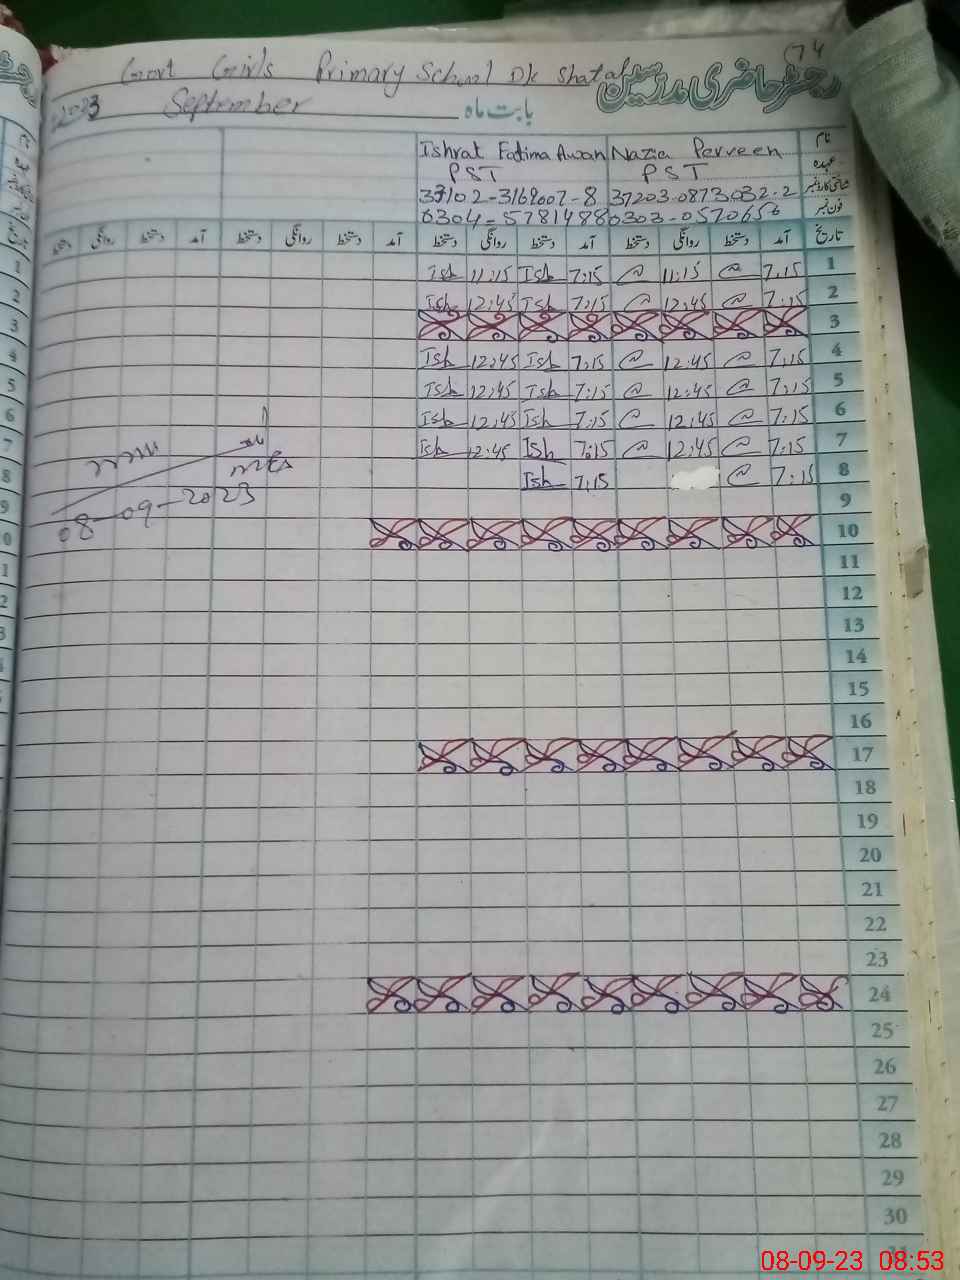 74
Govt Girls Primary School Dk Shatal
رجسٹر حاضری مدرسین
2023 September بابت ماہ
Ishrat Fatima Awan Nazia Perveen نام
PST PST عہدہ
33102-3169007-8 37203-0873032-2 شناختی کارڈ نمبر
0304-5781488 0303-0570656 فون نمبر
دستخط روانگی دستخط آمد دستخط روانگی دستخط آمد دستخط روانگی دستخط آمد دستخط روانگی دستخط آمد تاریخ
Ish 11:15 Ish 7:15 11:15 7:15 1
Ish 12:45 Ish 7:15 12:45 7:15 2
3
Ish 12:45 Ish 7:15 12:45 7:15 4
Ish 12:45 Ish 7:15 12:45 7:15 5
Ish 12:45 Ish 7:15 12:45 7:15 6
Ish 12:45 Ish 7:15 12:45 7:15 7
Ish 7:15 7:15 8
08-09-2023
9
10
11
12
13
14
15
16
17
18
19
20
21
22
23
24
25
26
27
28
29
30
08-09-23 08:53